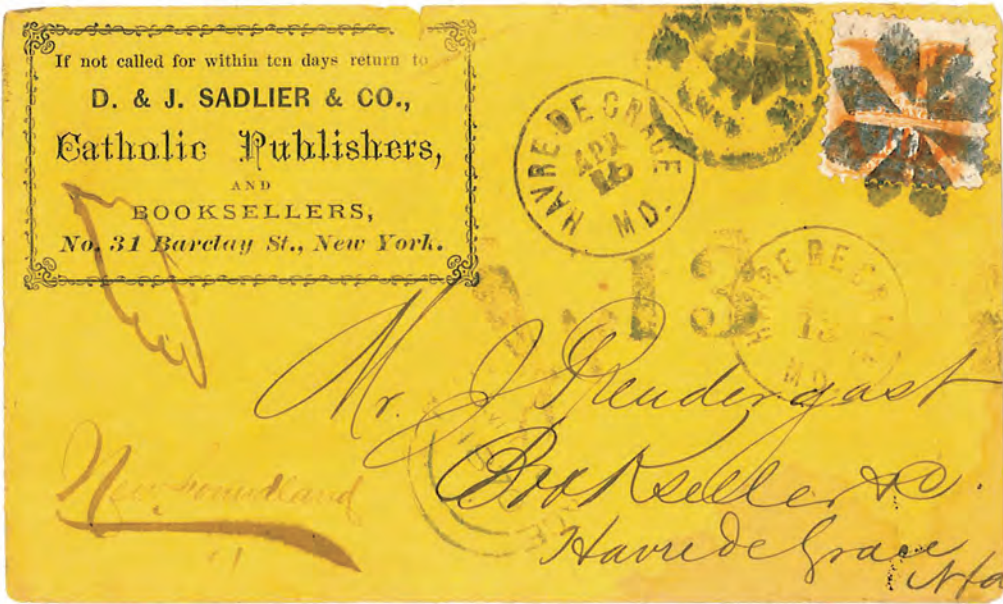 If not called for within ten days return to
D. & J. SADLIER & CO.,
Catholic Publishers,
AND
BOOKSELLERS,
No. 31 Barclay St., New York.
HAVRE DE GRACE
APR
MD.
13
HAVRE DE GRACE
13
MD.
Mr. J Prendergast
Bookseller &c.
Havre de Grace
Nfd
Newfoundland